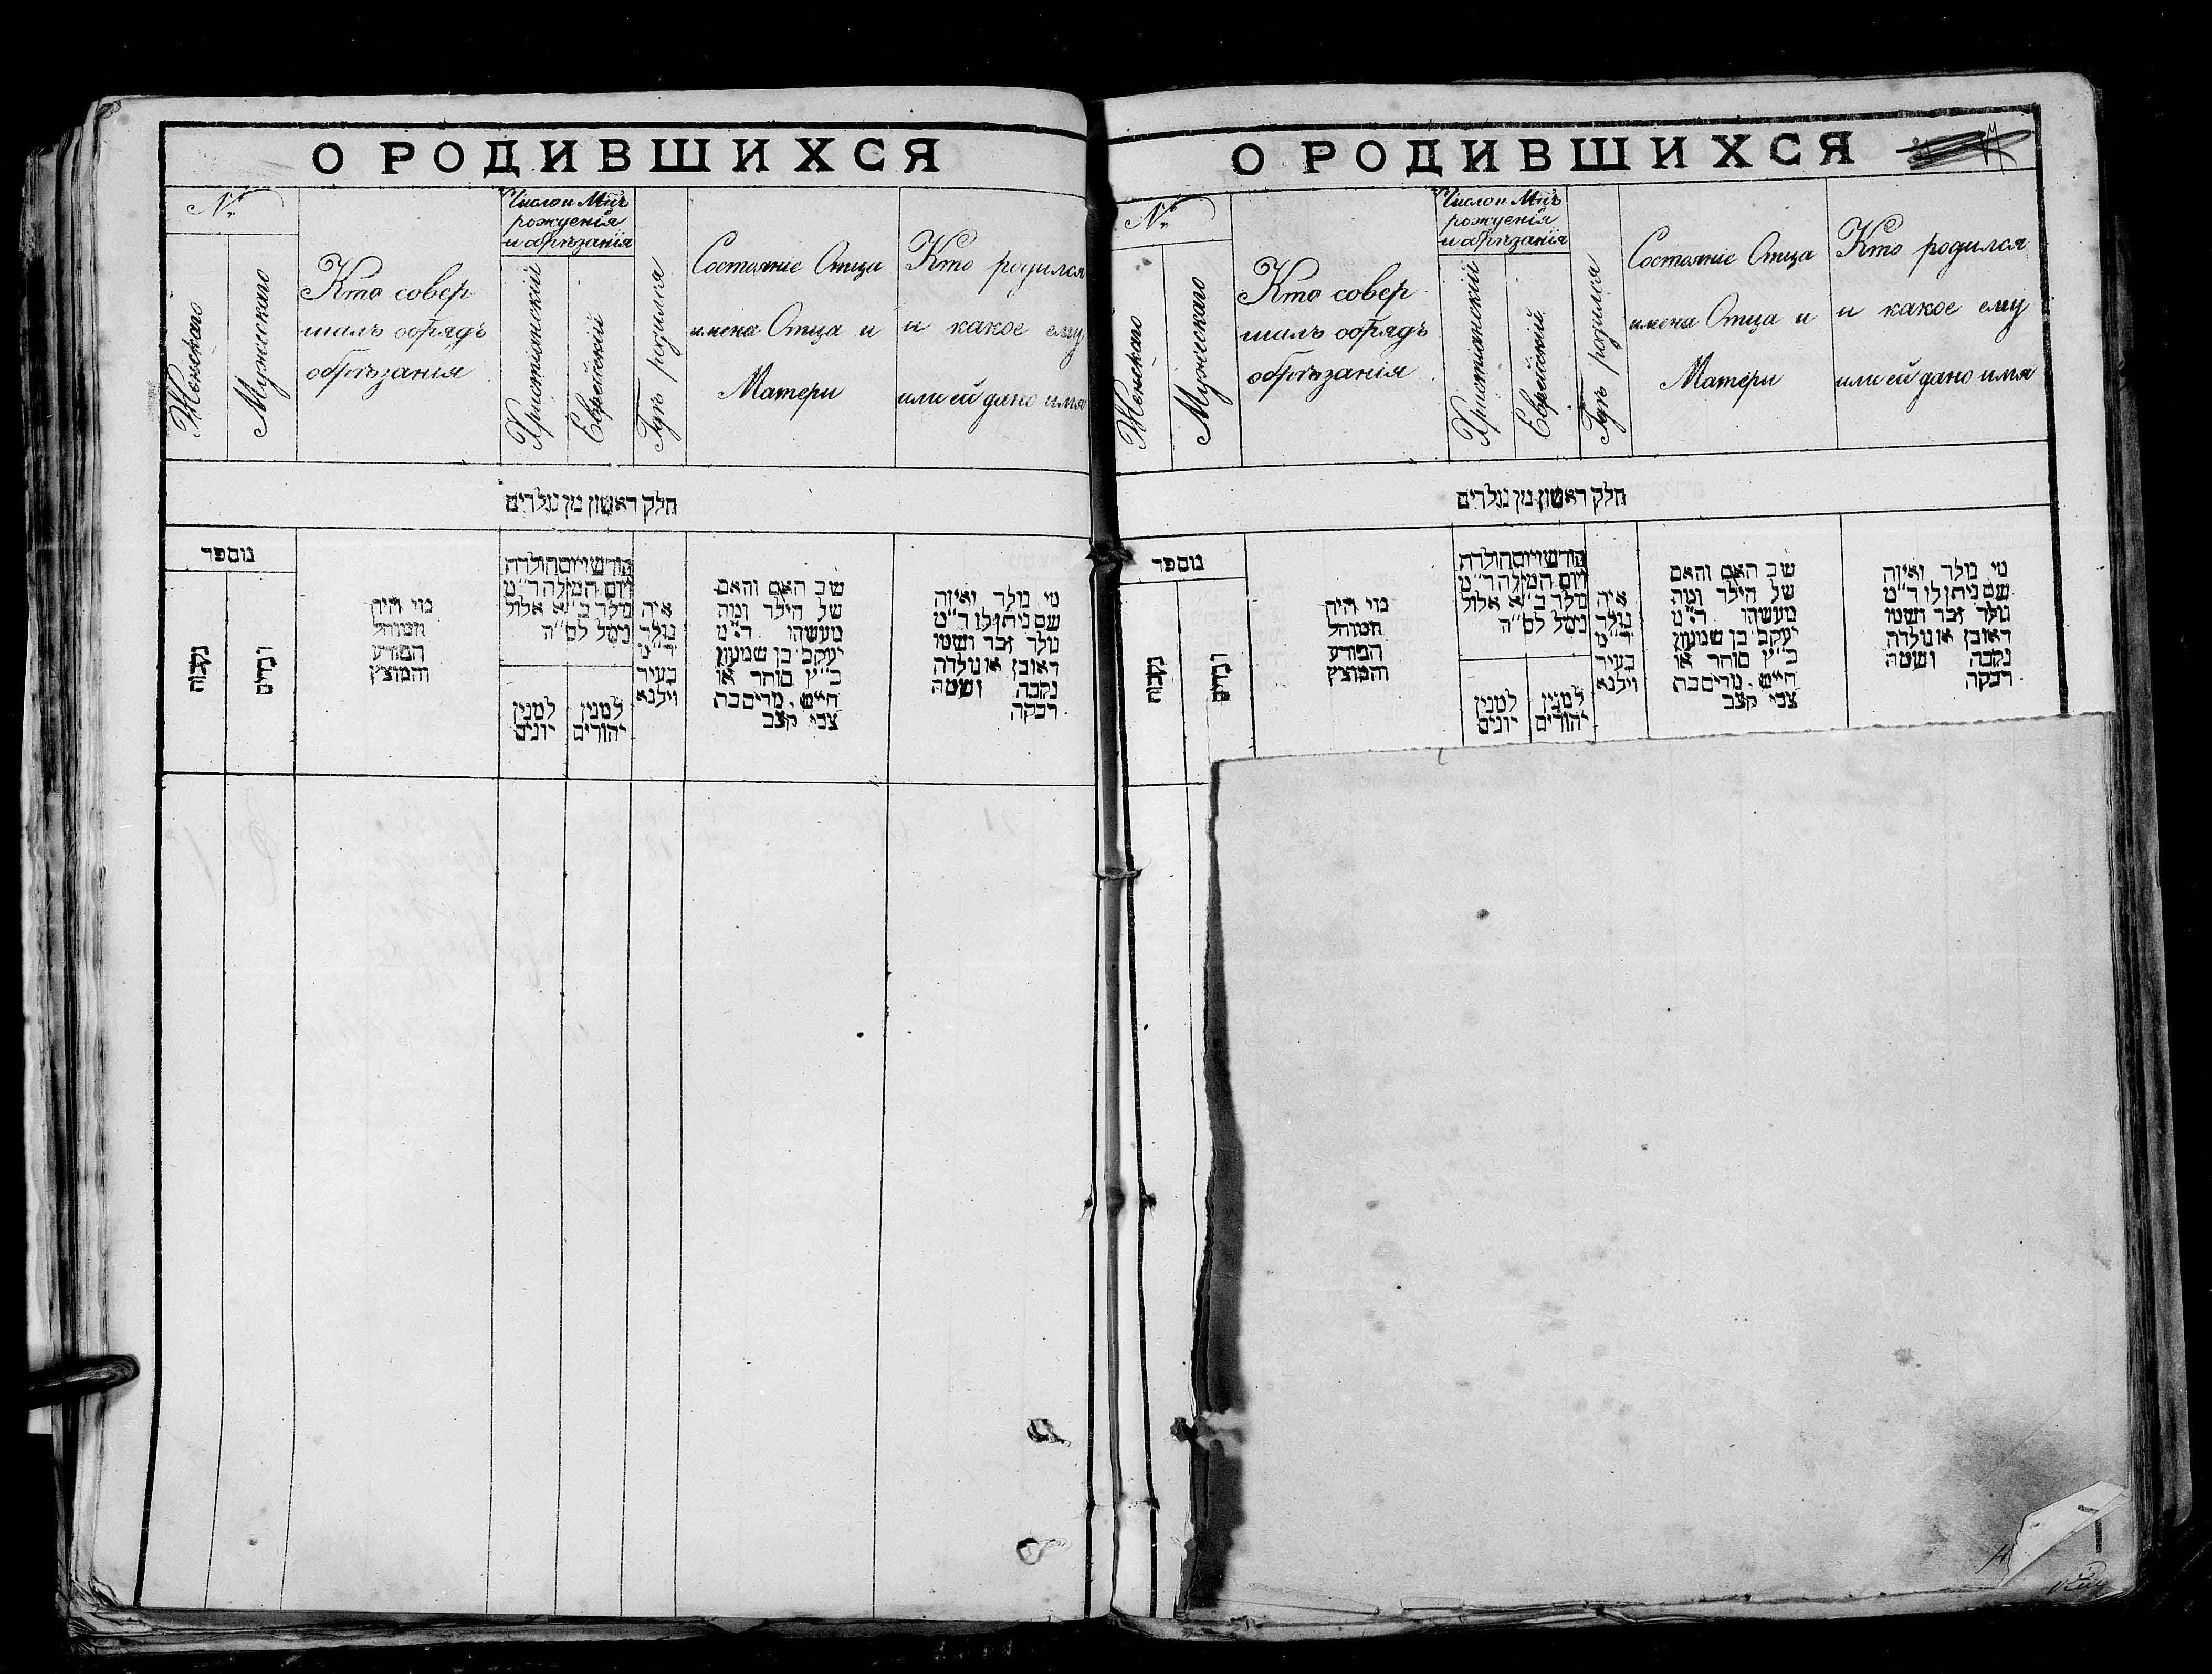 О РОДИВШИХСЯ
№
Женскаго
Мужескаго
Кто совер
шалъ обрядъ
обрѣзанія
Число и Мцъ
рожденія
и обрѣзанія
Христіанскій
Еврейскій
Гдѣ родился
Состояніе Отца
имена Отца и
Матери
Кто родился
и какое ему
или ей дано имя
חלק ראשון מן נולדים
מוספר
נקבות
זכרים
מי היה
המוהל
הפורע
והמוצץ
חודש ויום הולדת
ויום המילה ד״מ
נולד ב״א אלול
נימל לס״ה
למנין
יונים
למנין
יהודים
איה
נולד
ד״מ
בעיר
ווילנא
שם האב והאם
של הילד ומה
מעשהו ד״מ
יעקב בן שמעון
כ״ץ סוחר או
חייט, מרים בת
צבי קצב
מי נולד ואיזה
שם ניתן לו ד״מ
נולד זכר ושמו
ראובן או נולדה
נקבה ושמה
רבקה
О РОДИВШИХСЯ
№
Женскаго
Мужескаго
Кто совер
шалъ обрядъ
обрѣзанія
Число и Мцъ
рожденія
и обрѣзанія
Христіанскій
Еврейскій
Гдѣ родился
Состояніе Отца
имена Отца и
Матери
Кто родился
и какое ему
или ей дано имя
חלק ראשון מן נולדים
מוספר
נקבות
זכרים
מי היה
המוהל
הפורע
והמוצץ
חודש ויום הולדת
ויום המילה ד״מ
נולד ב״א אלול
נימל לס״ה
למנין
יונים
למנין
יהודים
איה
נולד
ד״מ
בעיר
ווילנא
שם האב והאם
של הילד ומה
מעשהו ד״מ
יעקב בן שמעון
כ״ץ סוחר או
חייט, מרים בת
צבי קצב
מי נולד ואיזה
שם ניתן לו ד״מ
נולד זכר ושמו
ראובן או נולדה
נקבה ושמה
רבקה